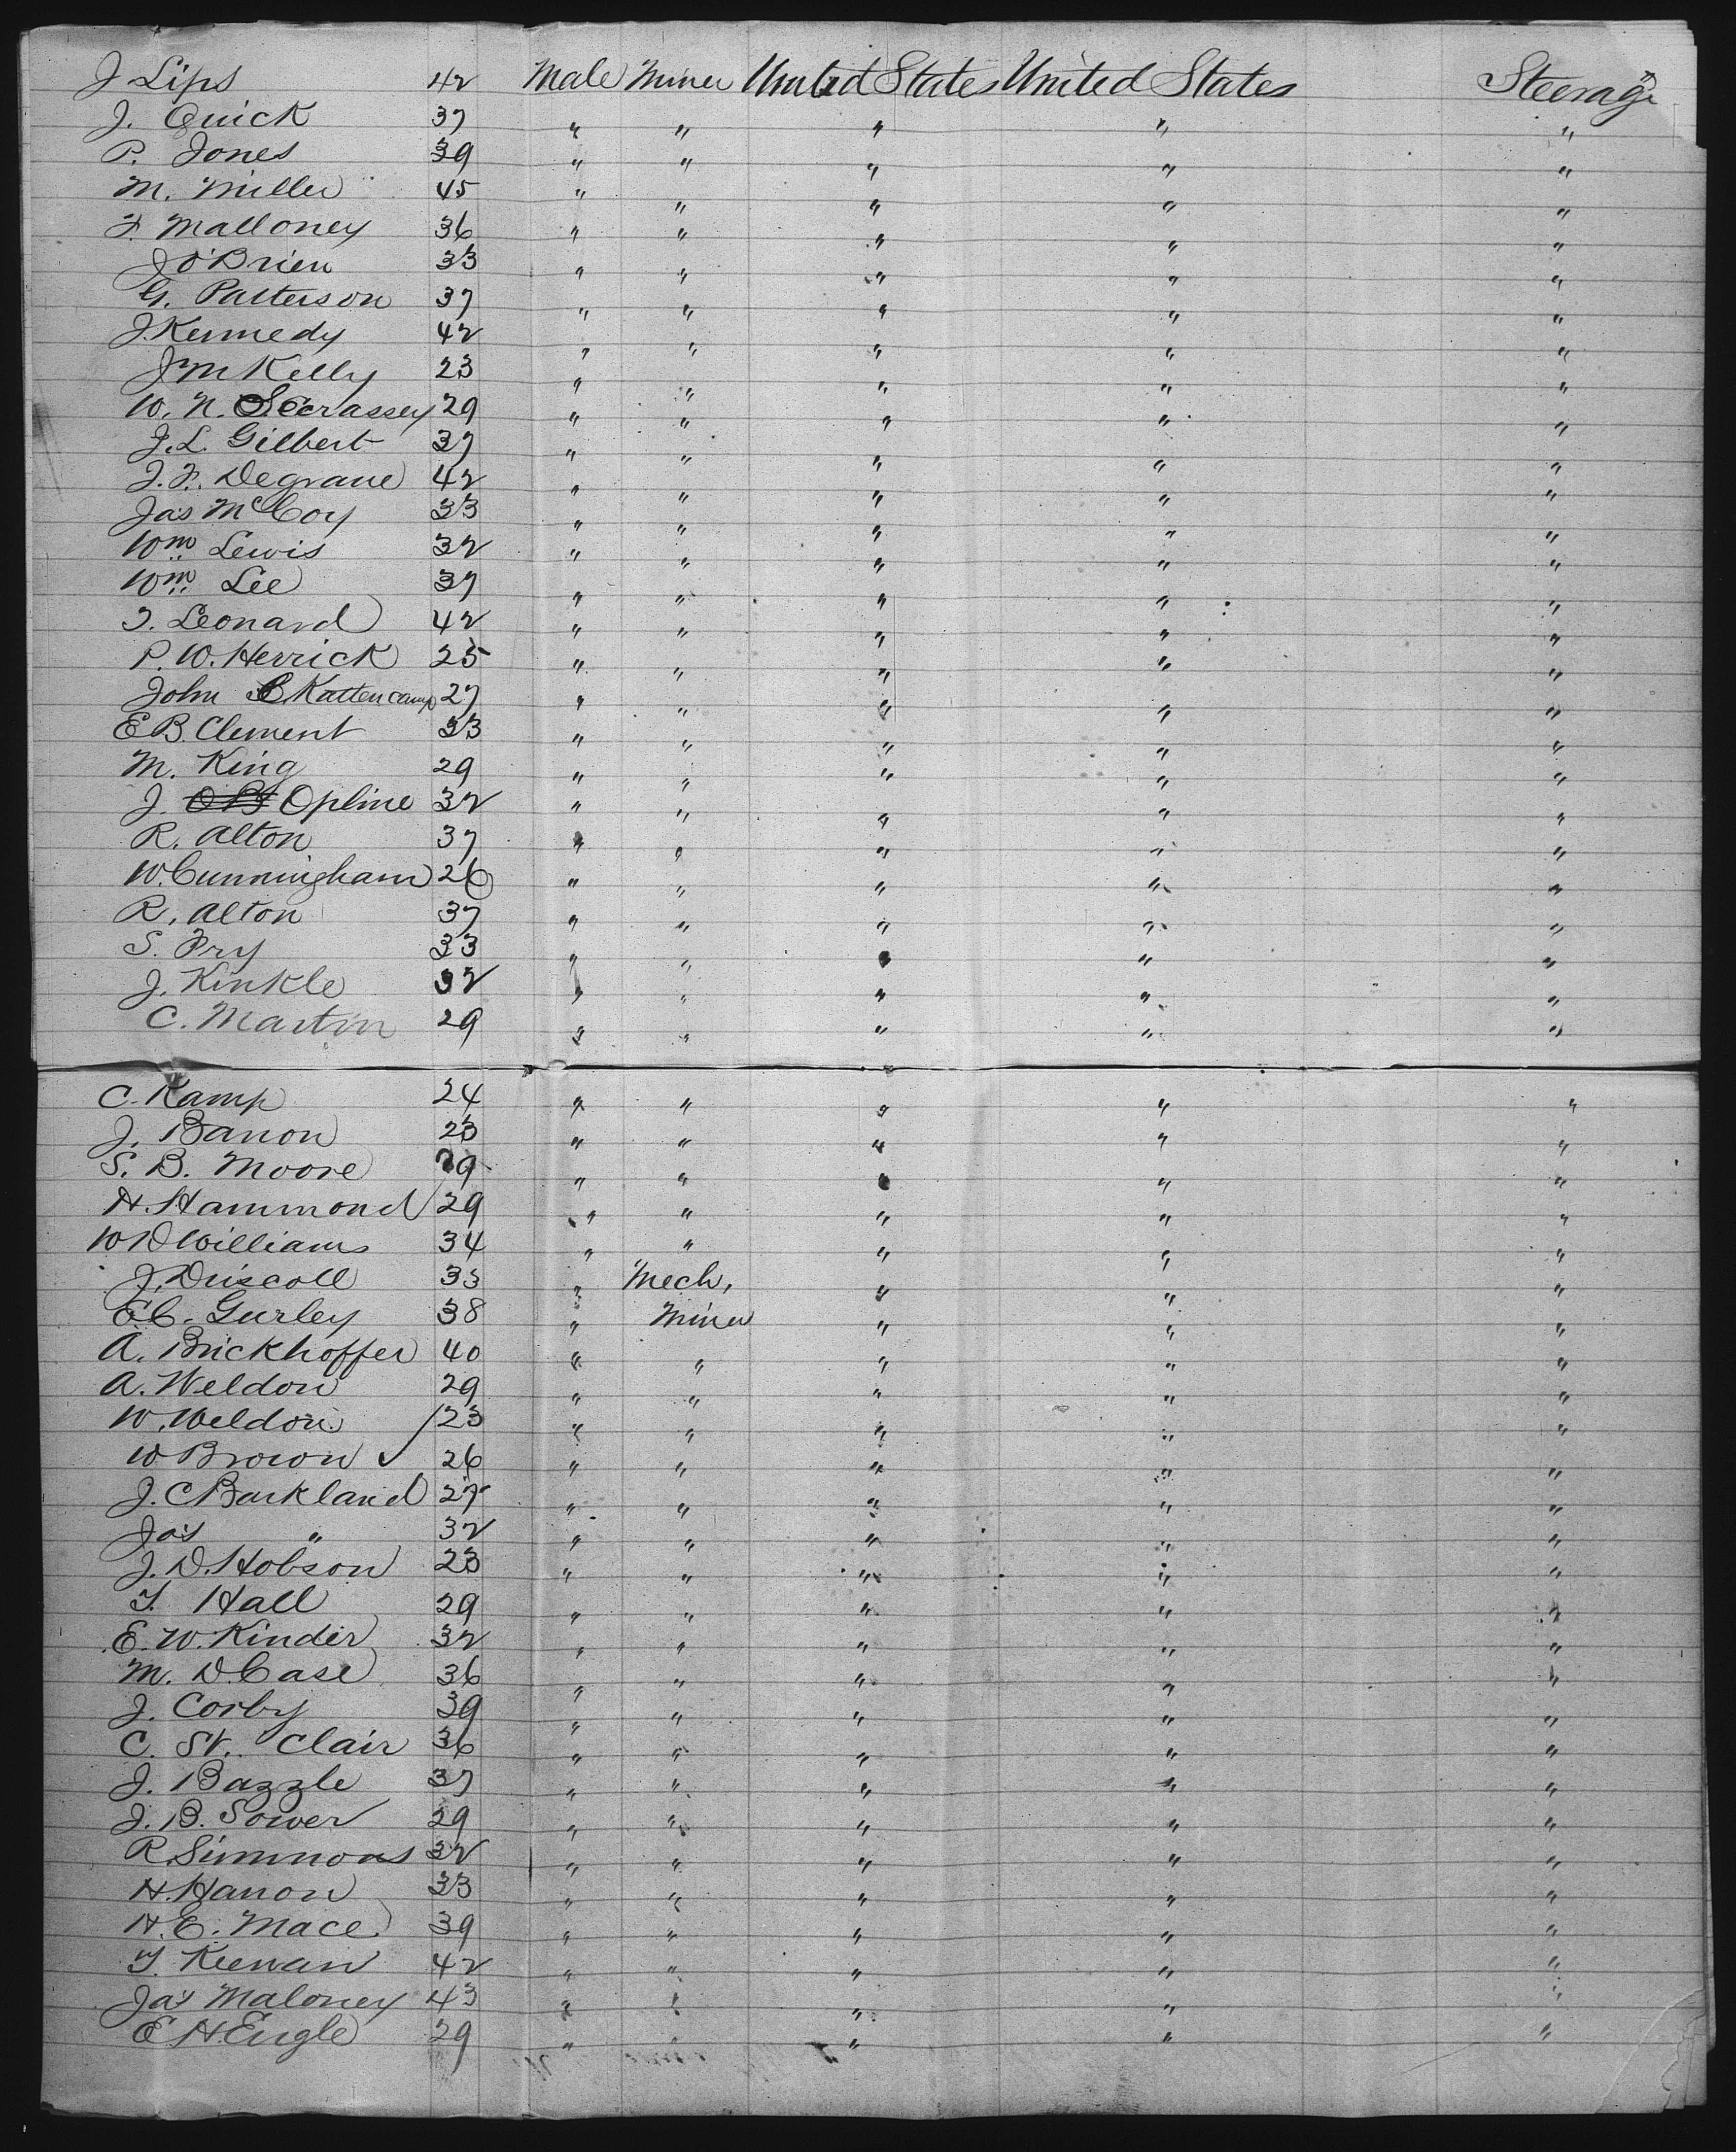 J Lips 42 Male Miner United States United States Steerage
J. Quick 37 " " " " "
P. Jones 39 " " " " "
M. Miller 45 " " " " "
F. Malloney 36 " " " " "
J O'Brien 33 " " " " "
G. Patterson 37 " " " " "
J. Kennedy 42 " " " " "
J M Kelly 23 " " " " "
W. N. 29 " " " " "
J. L. Gilbert 37 " " " " "
J. F. Degrane 42 " " " " "
Jas McCoy 33 " " " " "
Wm Lewis 32 " " " " "
Wm Lee 37 " " " " "
T. Leonard 42 " " " " "
P. W. Herrick 25 " " " " "
John C Kattencamp 27 " " " " "
E B. Clement 33 " " " " "
M. King 29 " " " " "
J. Opline 32 " " " " "
R. Alton 37 " " " " "
W. Cunningham 26 " " " " "
R. Alton 37 " " " " "
S. Fry 33 " " " " "
J. Kinkle 32 " " " " "
C. Martin 29 " " " " "
C. Kamp 24 " " " " "
J. Banon 23 " " " " "
S. B. Moore 29 " " " " "
H. Hammond 29 " " " " "
W D Williams 34 " " " " "
J. Driscoll 33 " Mech, " " "
E C. Gurley 38 " Miner " " "
A. Brickhoffer 40 " " " " "
A. Weldon 29 " " " " "
W. Weldon 23 " " " " "
W Brown ✓ 26 " " " " "
J. C Barkland 27 " " " " "
Jas " 32 " " " " "
J. D. Hobson 23 " " " " "
T. Hall 29 " " " " "
E. W. Kinder 32 " " " " "
M. D. Case 36 " " " " "
J. Corby 39 " " " " "
C. St. Clair 36 " " " " "
J. Bazzle 37 " " " " "
J. B. Sower 29 " " " " "
R. Simmons 32 " " " " "
H. Hanon 33 " " " " "
H. E. Mace 39 " " " " "
T. Keenan 42 " " " " "
Jas Maloney 43 " " " " "
E. H. Engle 29 " " " " "